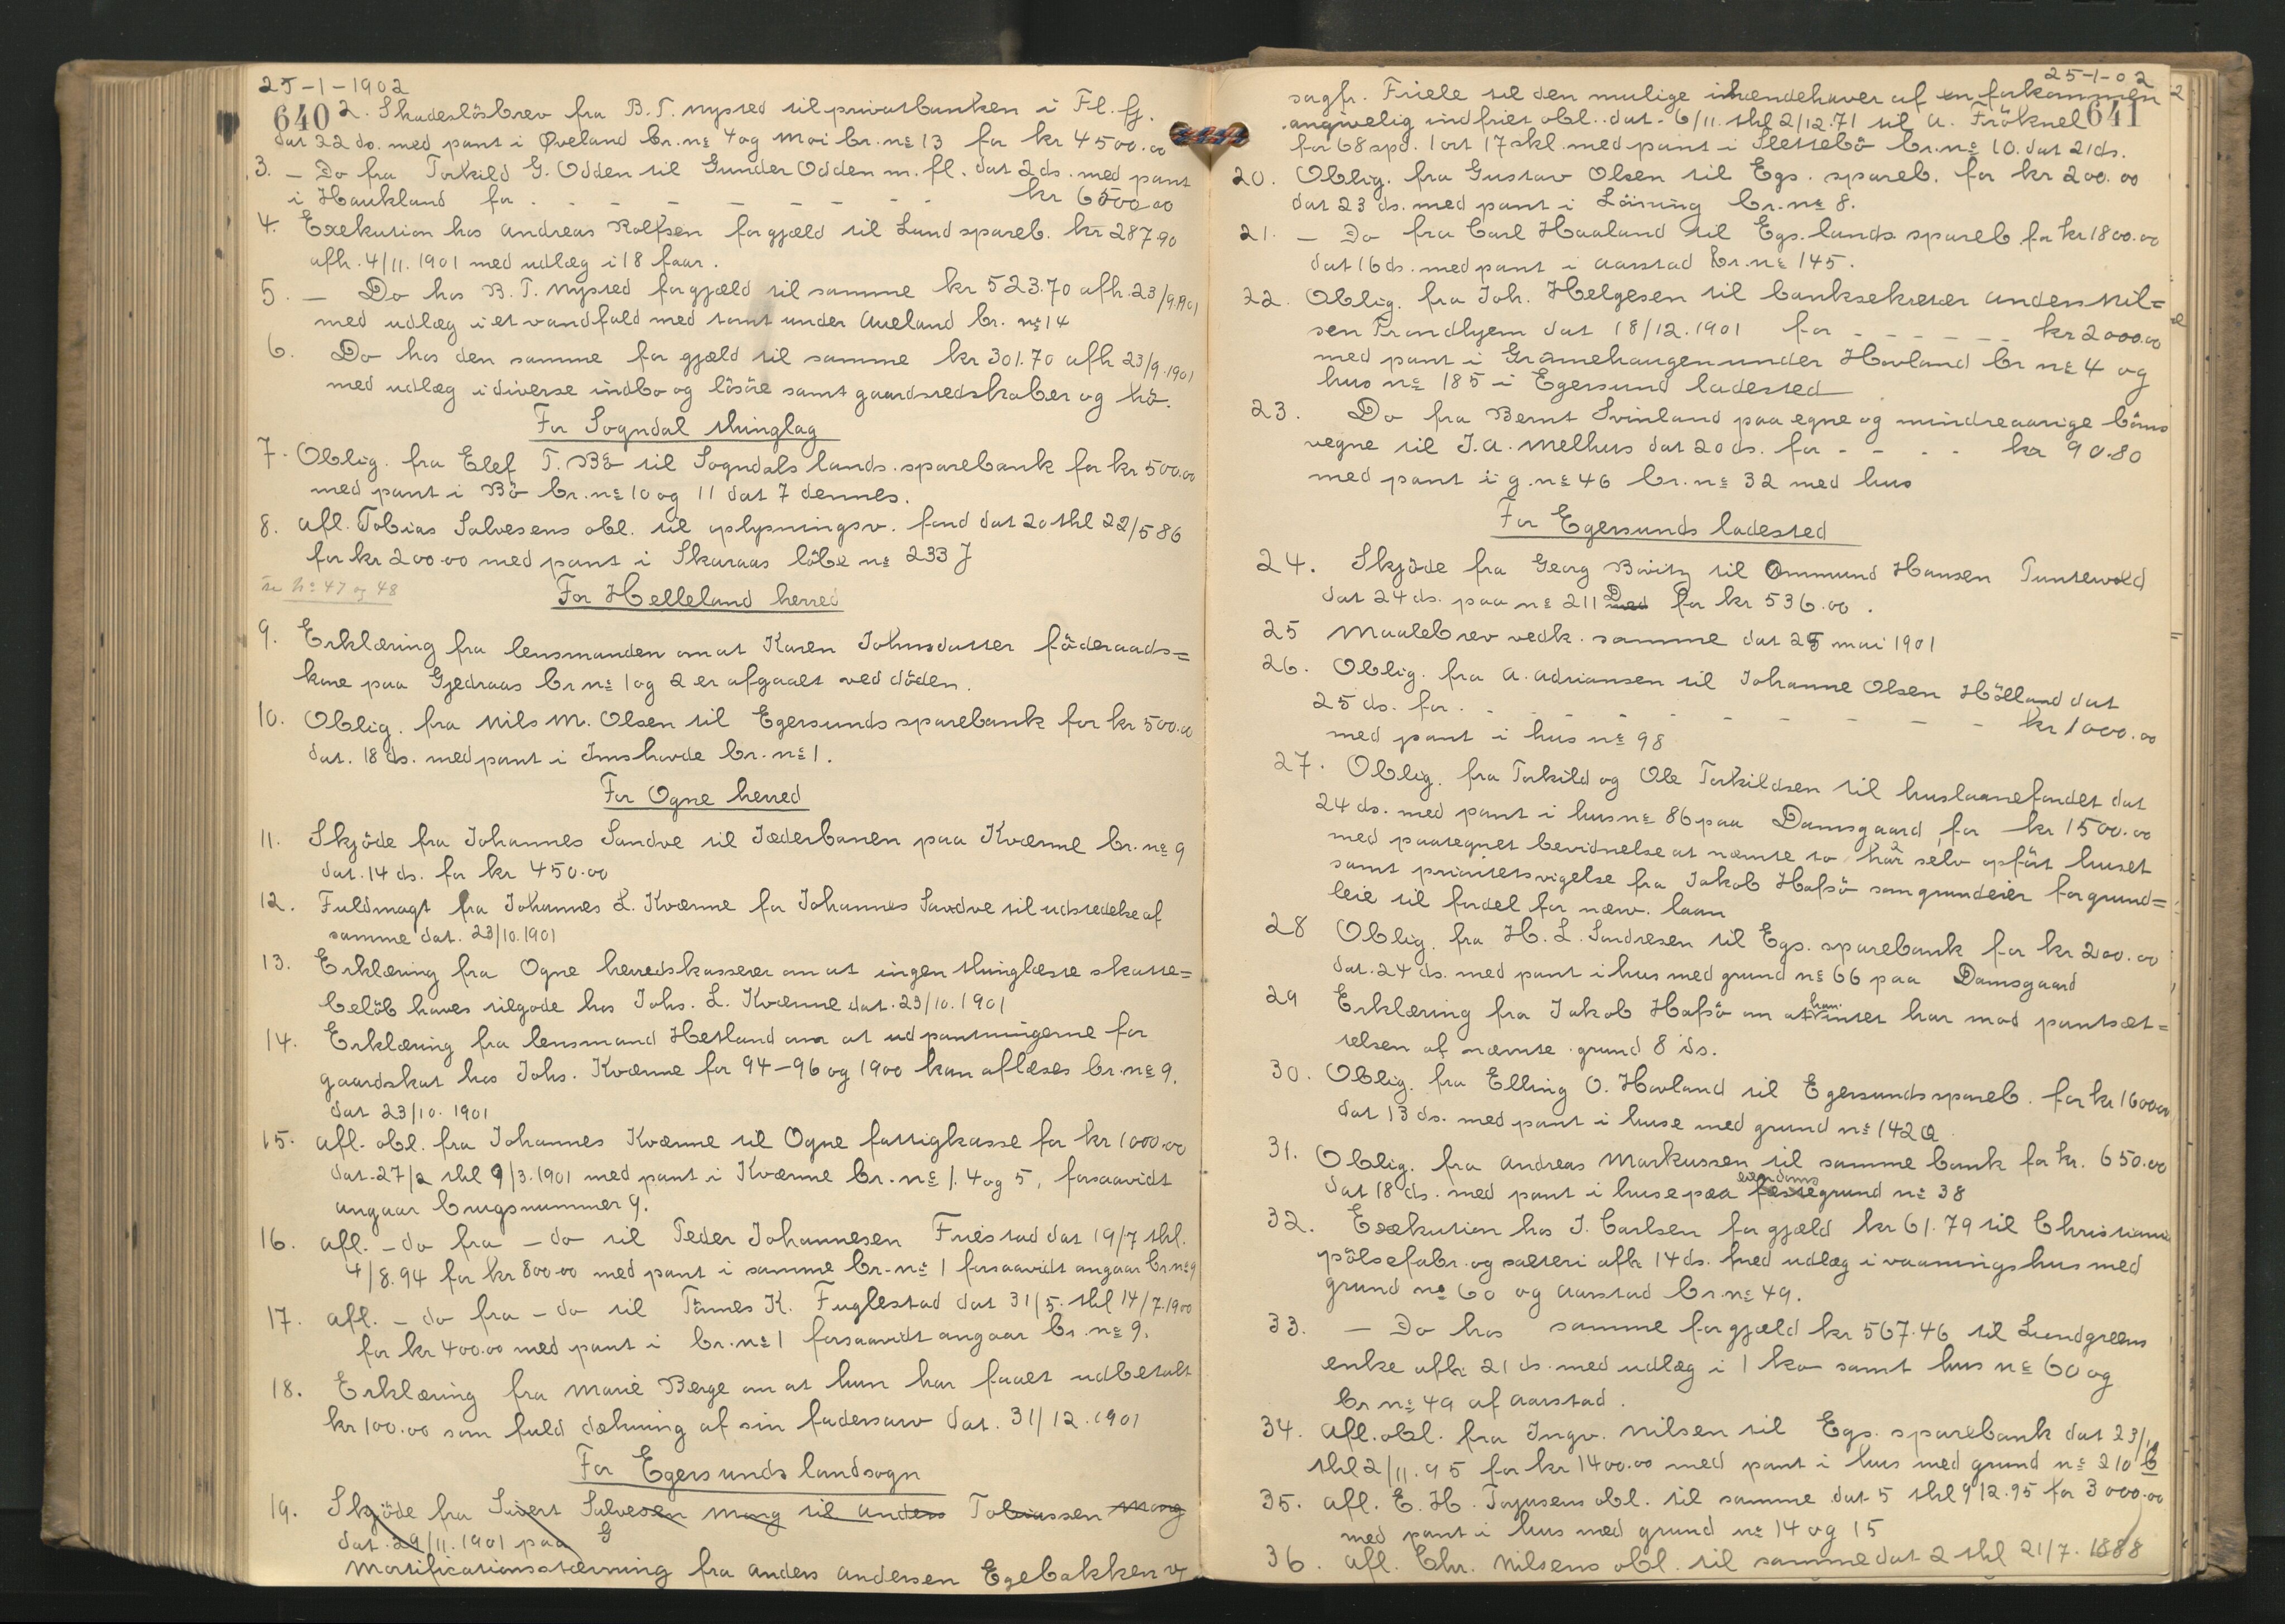 25-1-1902
640 2. Skadeslösbrev fra B. T. Nysted til privatbanken i Fl. fj.
dat 22 ds. med pant i Øveland br. nº 4 og Moi br. nº 13 for kr 4500.00
3. - Do fra Torkild G. Odden til Gunder Odden m. fl. dat 2 ds. med pant
i Haukland for - - - - - - - kr 6500.00
4. Exekution hos Andreas Rolfsen for gjæld til Lund spareb. kr 287.90
afh. 4/11. 1901 med udlæg i 18 faar.
5. - Do hos B. T. Nysted for gjæld til samme kr 523.70 afh. 23/9.1901
med udlæg i et vandfald med tomt under Aueland br. nº 14
6. Do hos den samme for gjæld til samme kr 301.70 afh 23/9.1901
med udlæg i diverse indbo og lösöre samt gaardsredskaber og hö.
For Sogndal thinglag
7. Oblig. fra Elef T. Bö til Sogndals lands. sparebank for kr 500.00
med pant i Bö br. nº 10 og 11 dat 7 dennes.
8. Afl. Tobias Salvesens obl. til oplysningsv. fond dat 20 thl 22/5 86
for kr 200.00 med pant i Skaraas löbe nº 233 J
se nº 47 og 48
For Helleland herred
9. Erklæring fra lensmanden om at Karen Johnsdatter föderaads=
kone paa Gjedraas br nº 1 og 2 er afgaaet ved döden.
10. Oblig. fra Nils M. Olsen til Egersunds sparebank for kr 500.00
dat. 18 ds. med pant i Imshovde br. nº 1.
For Ogne herred
11. Skjöde fra Johannes Sandve til Jæderbanen paa Kværne br. nº 9
dat. 14 ds. for kr 450.00
12. Fuldmagt fra Johannes L. Kværne for Johannes Sandve til udstedelse af
samme dat. 23/10.1901
13. Erklæring fra Ogne herredskasserer om at ingen thinglæste skatte=
belöb haves tilgode hos Johs. L. Kværne dat. 23/10.1901
14. Erklæring fra lensmand Hetland om at udpantningerne for
gaardskat hos Johs. Kværne for 94-96 og 1900 kan aflæses br. nº 9.
dat 23/10. 1901
15. Afl. obl. fra Johannes Kværne til Ogne fattigkasse for kr 1000.00
dat. 27/2 thl 9/3.1901 med pant i Kværne br. nº 1. 4 og 5, forsaavidt
angaar brugsnummer 9.
16. Afl. - do fra - do til Peder Johannesen Friestad dat 19/7 thl.
4/8.94 for kr 800.00 med pant i samme br. nº 1 forsaavidt angaar br. nº 9
17. Afl. - do fra - do til Tönnes K. Fuglestad dat 31/5. thl 14/7.1900
for kr 400.00 med pant i br. nº 1 forsaavidt angaar br. nº 9.
18. Erklæring fra Marie Berge om at hun har faaet udbetalt
kr 100.00 som fuld dækning af sin fadersarv dat. 31/12.1901
For Egersunds landsogn
19. Skjöde fra Sivert Salvesen Mong til Anders Tobiassen Mong
dat. 29/11. 1901 paa G
Mortificationsstævning fra Anders Andersen Egebakken v/
25-1-02
sagfr. Friele til den mulige ihændehaver af en forkommen
angivelig indfriet obl. dat. 6/11. thl 2/12.71 til A. Fröknel 641
for 68 spd. 1 ort 17 skl. med pant i Slettebö br. nº 10. dat 21 ds.
20. Oblig. fra Gustav Olsen til Egs. spareb. for kr 200.00
dat 23 ds. med pant i Löining br. nº 8.
21. - Do fra Carl Haaland til Egs. lands spareb. for kr 1800.00
dat 16 ds. med pant i Aarstad br. nº 145.
22. Oblig. fra Joh. Helgesen til banksekretær Anders Nil=
sen Trondhjem dat 18/12.1901 for - - - - - kr 2000.00
med pant i Grønehaugen under Hovland br nº 4 og
hus nº 185 i Egersund ladested
23. Do fra Bernt Svinland paa egne og mindreaarige börns
vegne til J. A. Melhus dat 20 ds. for - - - - kr 90.80
med pant i g. nº 46 br. nº 32 med hus
For Egersunds ladested
24. Skjöde fra Georg Bowitz til Ommund Hansen Tuntevold
dat 24 ds. paa nº 211 D med for kr 536.00.
25 Maalebrev vedk. samme dat 25 mai 1901
26. Oblig. fra A. Adriansen til Johanne Olsen Hölland dat
25 ds. for - - - - - - - - kr 1000.00
med pant i hus nº 98
27. Oblig. fra Torkild og Ole Torkildsen til huslaanefondet dat
24 ds. med pant i hus nº 86 paa Damsgaard for kr 1500.00
med paategnet bevidnelse at nævnte to har selv opfört huset
samt prioritetsvigelse fra Jakob Hafsö som grundeier for grund=
leie til fordel for nævn. laan
28 Oblig. fra H. L. Sandresen til Egs. sparebank for kr 200.00
dat. 24 ds. med pant i hus med grund nº 66 paa Damsgaard
29 Erklæring fra Jakob Hafsö om at han intet har mod pantsæt=
telsen af nævnte grund 8 ds.
30. Oblig. fra Elling O. Hovland til Egersunds spareb. for kr 1600.00
dat 13 ds. med pant i huse med grund nº 142 a
31. Oblig. fra Andreas Markussen til samme bank for kr. 650.00
dat 18 ds. med pant i huse paa eiendoms fæstegrund nº 38
32. Exekution hos J. Carlsen for gjæld kr 61.79 til Christiania
pölsefabr. og salteri afh 14 ds. med udlæg i vaaningshus med
grund nº 60 og Aarstad br. nº 49.
33. - Do hos samme for gjæld kr 567.46 til Lundgreens
enke afh 21 ds. med udlæg i 1 ko samt hus nº 60 og
br nº 49 af Aarstad.
34. Afl. obl. fra Ingv. Nilsen til Egs. sparebank dat 23/
thl 2/11.95 for kr 1400.00 med pant i hus med grund nº 210 b
35. Afl. E. H. Torjusens obl. til samme dat 5 thl 9 12.95 for 3000.00
med pant i hus med grund nº 14 og 15
36. Afl. Chr. Nilsens obl. til samme dat 2 thl 21/7. 1888